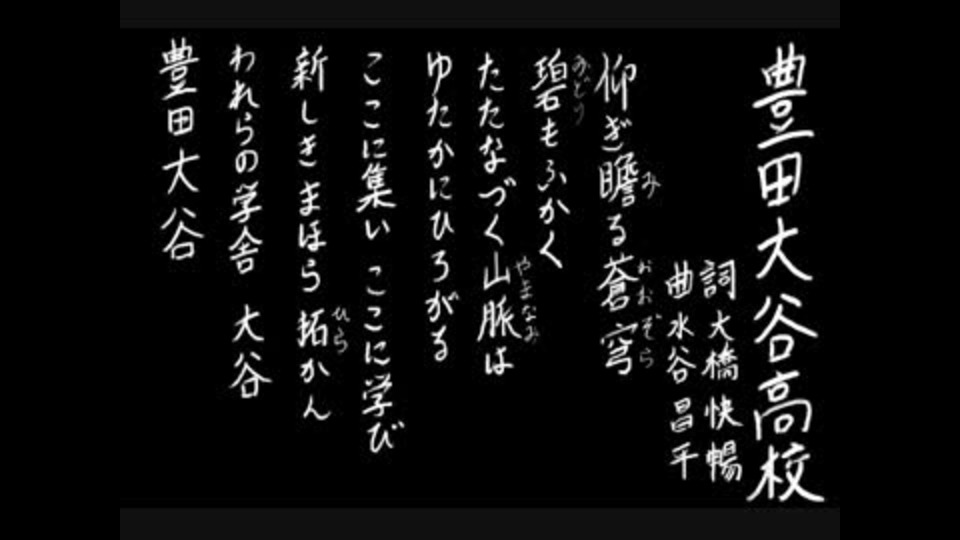 豊田大谷高校
詞 大橋快暢
曲 水谷昌平
仰ぎ瞻る蒼穹
み おおぞら
碧もふかく
みどり
たたなづく山脈は
やまなみ
ゆたかにひろがる
ここに集い ここに学び
新しきまほら拓かん
ひら
われらの学舎 大谷
豊田大谷